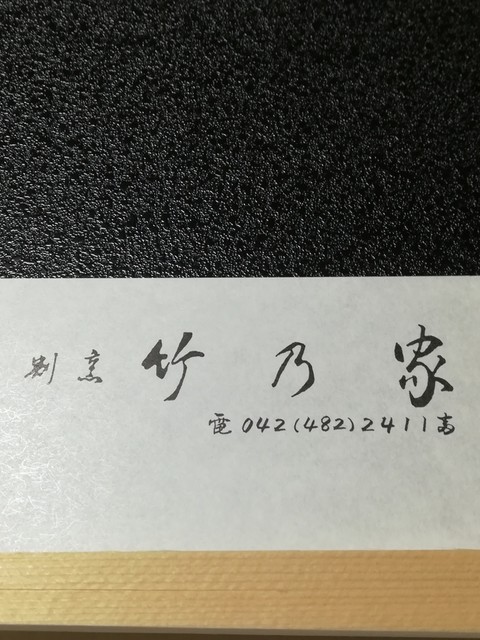 割烹 竹乃家
電 042(482)2411番